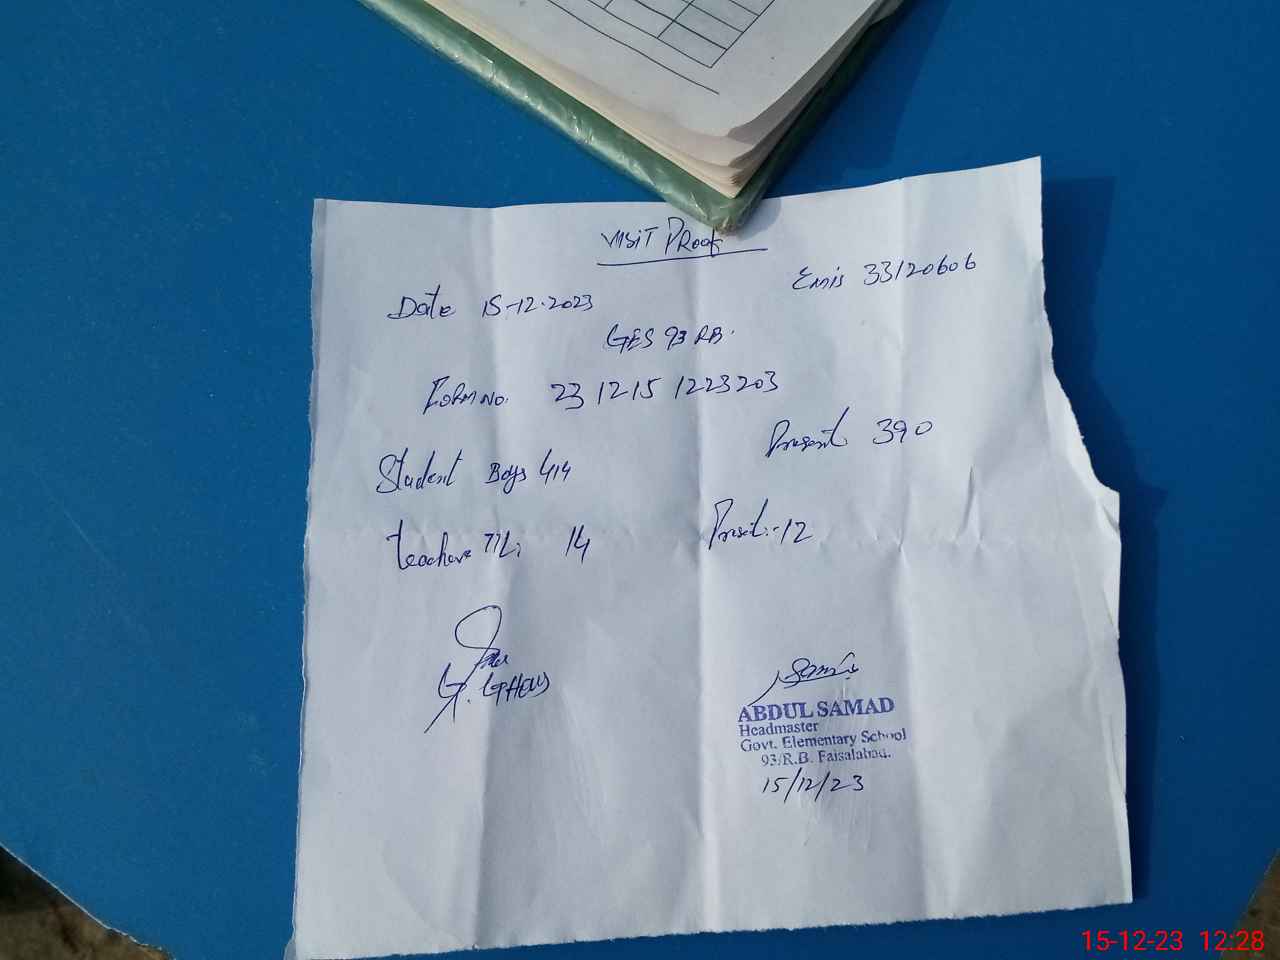 VISIT PROOF
Emis 33120606
Date 15-12-2023
GES 93 RB.
FORM No. 23 1215 1223203
Present 390
Student Boys 414
Teachers 14
Present:- 12
G. GHOUS
ABDUL SAMAD
Headmaster
Govt. Elementary School
93/R.B. Faisalabad.
15/12/23
15-12-23 12:28